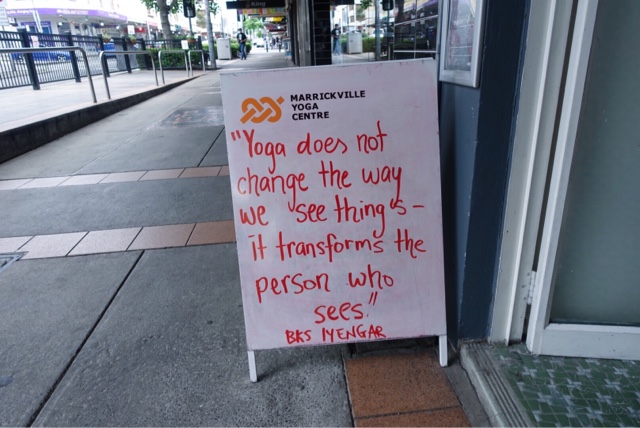 MARRICKVILLE
YOGA
CENTRE
"Yoga does not
change the way
we see things –
it transforms the
person who
sees"
BKS IYENGAR